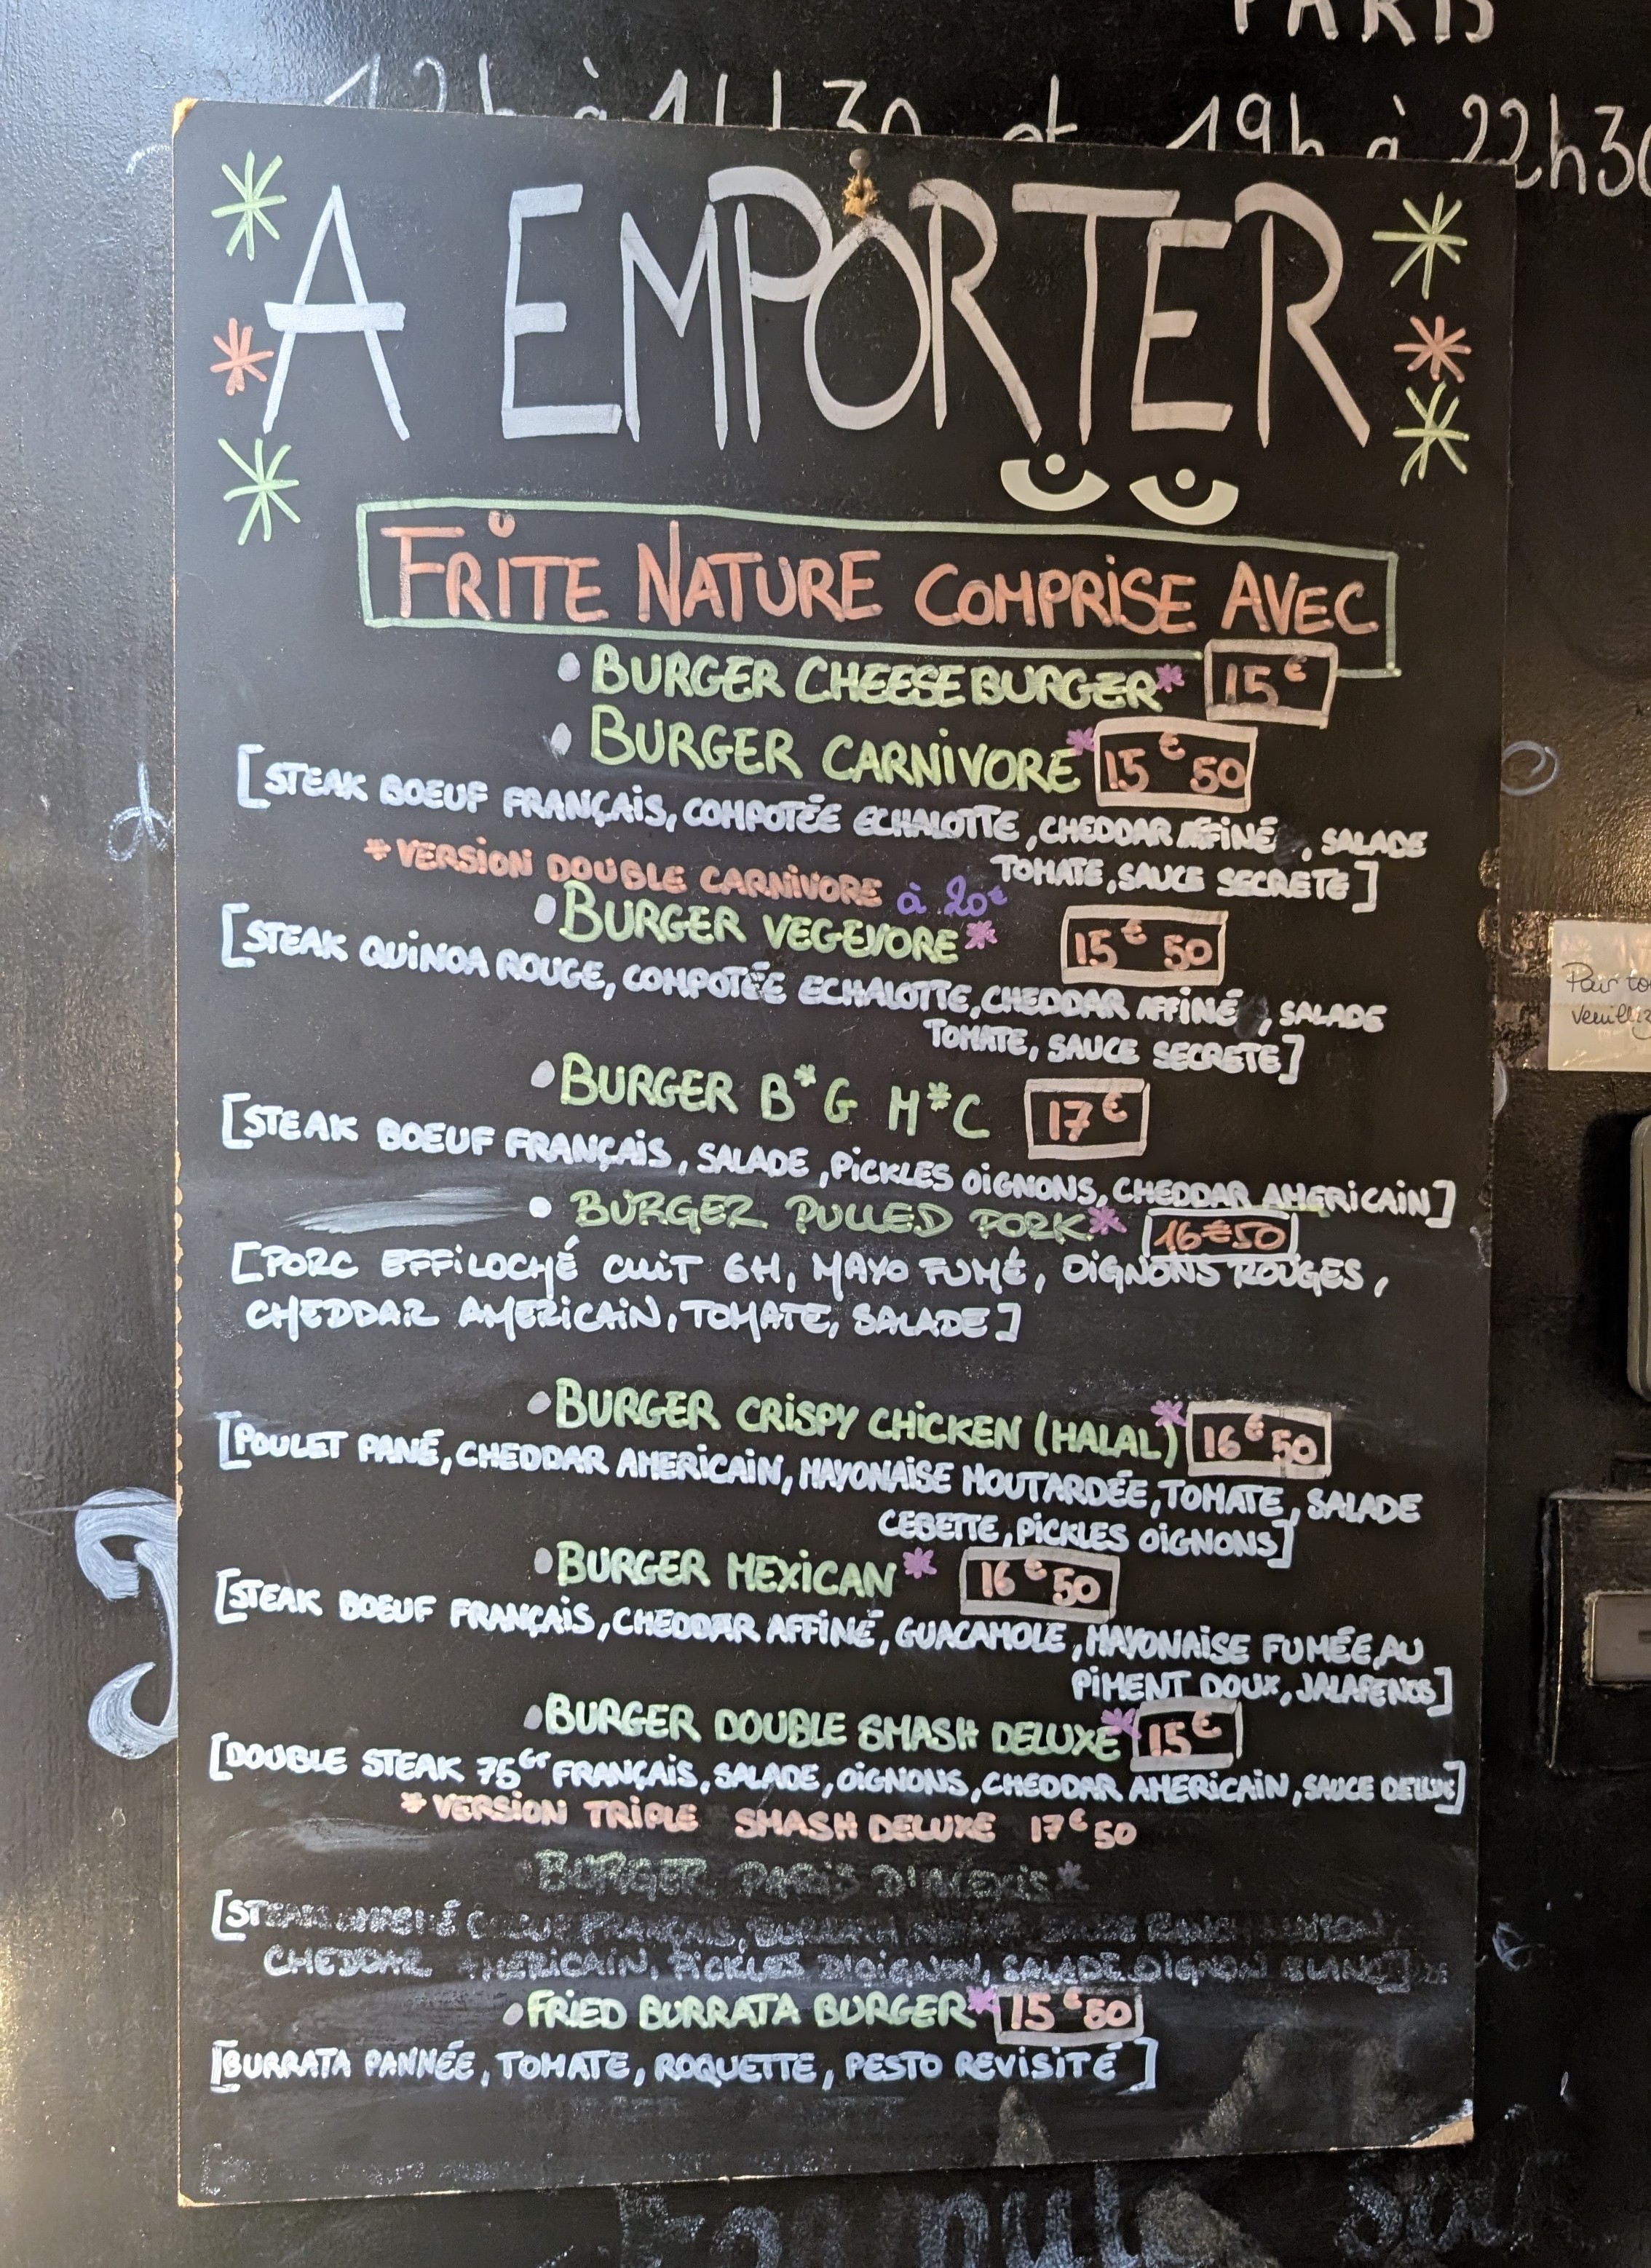 PARIS
12h à 14h30 et 19h à 22h30
A EMPORTER
FRITE NATURE COMPRISE AVEC
• BURGER CHEESEBURGER* 15€
• BURGER CARNIVORE* 15€50
[STEAK BOEUF FRANÇAIS, COMPOTÉE ECHALOTTE, CHEDDAR AFFINÉ, SALADE
TOMATE, SAUCE SECRETE]
* VERSION DOUBLE CARNIVORE à 20€
• BURGER VEGEVORE* 15€50
[STEAK QUINOA ROUGE, COMPOTÉE ECHALOTTE, CHEDDAR AFFINÉ, SALADE
TOMATE, SAUCE SECRETE]
• BURGER B*G M*C 17€
[STEAK BOEUF FRANÇAIS, SALADE, PICKLES OIGNONS, CHEDDAR AMERICAIN]
• BURGER PULLED PORK* 16€50
[PORC EFFILOCHÉ CUIT 6H, MAYO FUMÉ, OIGNONS ROUGES,
CHEDDAR AMERICAIN, TOMATE, SALADE]
• BURGER CRISPY CHICKEN (HALAL)* 16€50
[POULET PANÉ, CHEDDAR AMERICAIN, MAYONAISE MOUTARDÉE, TOMATE, SALADE
CEBETTE, PICKLES OIGNONS]
• BURGER MEXICAN* 16€50
[STEAK BOEUF FRANÇAIS, CHEDDAR AFFINÉ, GUACAMOLE, MAYONAISE FUMÉE, AU
PIMENT DOUX, JALAPENOS]
• BURGER DOUBLE SMASH DELUXE* 15€
[DOUBLE STEAK 75GR FRANÇAIS, SALADE, OIGNONS, CHEDDAR AMERICAIN, SAUCE DELUXE]
* VERSION TRIPLE SMASH DELUXE 17€50
• BURGER PARIS D'ALEXIS*
FRANÇAIS, BURRATA
CHEDDAR AMERICAIN, PICKLES D'OIGNON, SALADE, OIGNON BLANC]
• FRIED BURRATA BURGER* 15€50
[BURRATA PANNÉE, TOMATE, ROQUETTE, PESTO REVISITÉ]
Pour